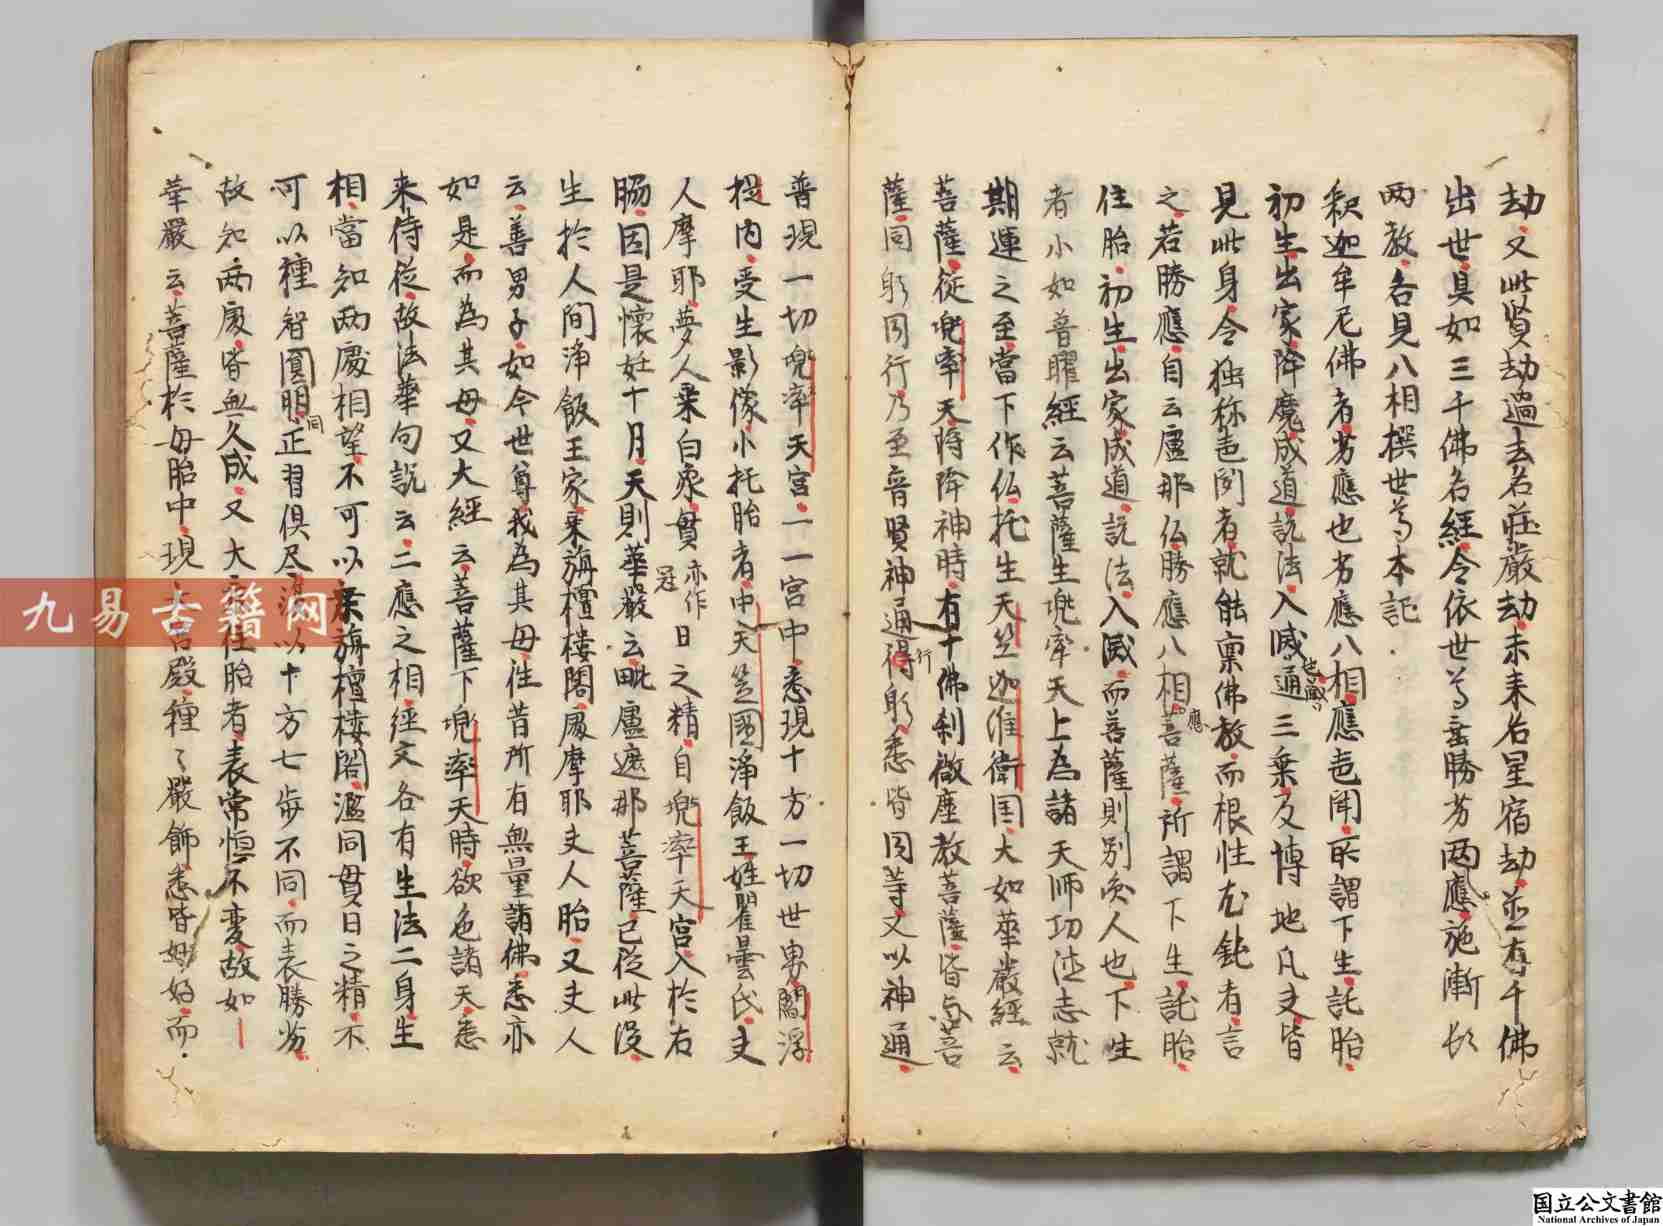 劫又此賢劫過去名莊嚴劫未来名星宿劫並有千佛
出世具如三千佛名經今依世尊垂勝劣両應施漸頓
両教各見八相撰世尊本記
釈迦牟尼佛者劣應也劣應八相應声聞所謂下生託胎
初生出家降魔成道説法入滅通三乗及博地凡夫皆
也蔵
見此身今独称声聞者就能稟佛教而根性尤鈍者言
之若勝應自云盧那仏勝應八相菩薩所謂下生託胎
應
住胎初生出家成道説法入滅而菩薩則別為人也下生
者小如普曜經云菩薩生兜率天上為諸天師功徳志就
期運之至當下作仏托生天竺迦維衛国大如華嚴經云
菩薩従兜率天将降神時有十佛刹微塵数菩薩皆与菩
薩同形同行乃至普賢神通得形悉皆同等又以神通
行
普現一切兜率天宮一一宮中悉現十方一切世界閻浮
提内受生影像小托胎者中天竺國浄飯王姓瞿曇氏夫
人摩耶夢人乗白象貫日之精自兜率天宮入於右
亦作冠
脇因是懐妊十月天則華嚴云毗盧遮那菩薩已従此没
生於人間浄飯王家乗旃檀楼閣處摩耶夫人胎又夫人
云善男子如今世尊我為其母往昔所有無量諸佛悉亦
如是而為其母又大經云菩薩下兜率天時欲色諸天悉
来侍従故法華句説云二應之相經文各有生法二身生
相當知両處相望不可以乗旃檀楼閣濫同貫日之精不
可以種智圓明正習倶尽濫以十方七歩不同而表勝劣
同
故知両處皆無久成又大 住胎者表常恒不変故如
華嚴云菩薩於母胎中現 宮殿種々嚴飾悉皆妙好而
九易古籍网
国立公文書館
National Archives of Japan